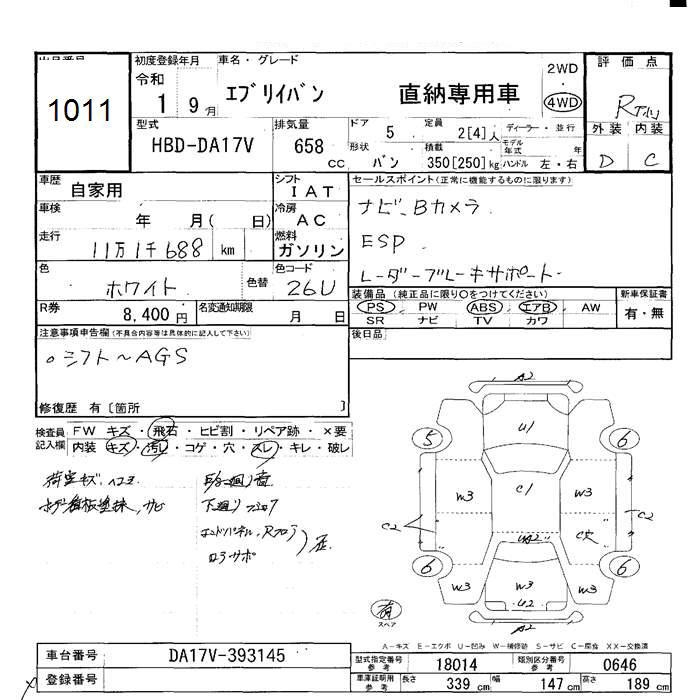 1011
初度登録年月
令和
1 9月
車名・グレード
エブリイバン 直納専用車
2WD
4WD
評価点
外装 内装
D C
型式
HBD-DA17V
排気量
658
CC
ドア 5
定員 2[4]人
ディーラー・並行
モデル年式 年
形状 バン
積載 350[250]kg
ハンドル 左・右
車歴 自家用
シフト IAT
車検 年 月( 日)
冷房 AC
走行 11万1千688 km
燃料 ガソリン
色 ホワイト
色替
色コード 26U
R券 8,400円
名変通知期限 月 日
セールスポイント(正常に機能するものに限ります)
ナビ、Bカメラ
ESP
レーダーブレーキサポート
装備品 (純正品に限り○をつけてください)
PS PW ABS エアB AW
SR ナビ TV カワ
新車保証書
有・無
後日品
注意事項申告欄(不具合内容等は具体的に記入して下さい)
○シフト〜AGS
修復歴 有〔箇所 〕
検査員記入欄
FW キズ・飛石・ヒビ割・リペア跡・×要
内装 キズ・汚レ・コゲ・穴・スレ・キレ・破レ
荷室キズ、ヘコミ
A2
U1
5
6
W3
C1
W3
C2
C2
6
6
W3
W3
W3
U2
A2
有
スペア
A-キズ E-エクボ U-凹み W-補修跡 S-サビ C-腐食 XX-交換済
車台番号 DA17V-393145
登録番号
型式指定番号 参考 18014
類別区分番号 参考 0646
車庫証明用 参考
長さ 339cm
幅 147cm
高さ 189cm